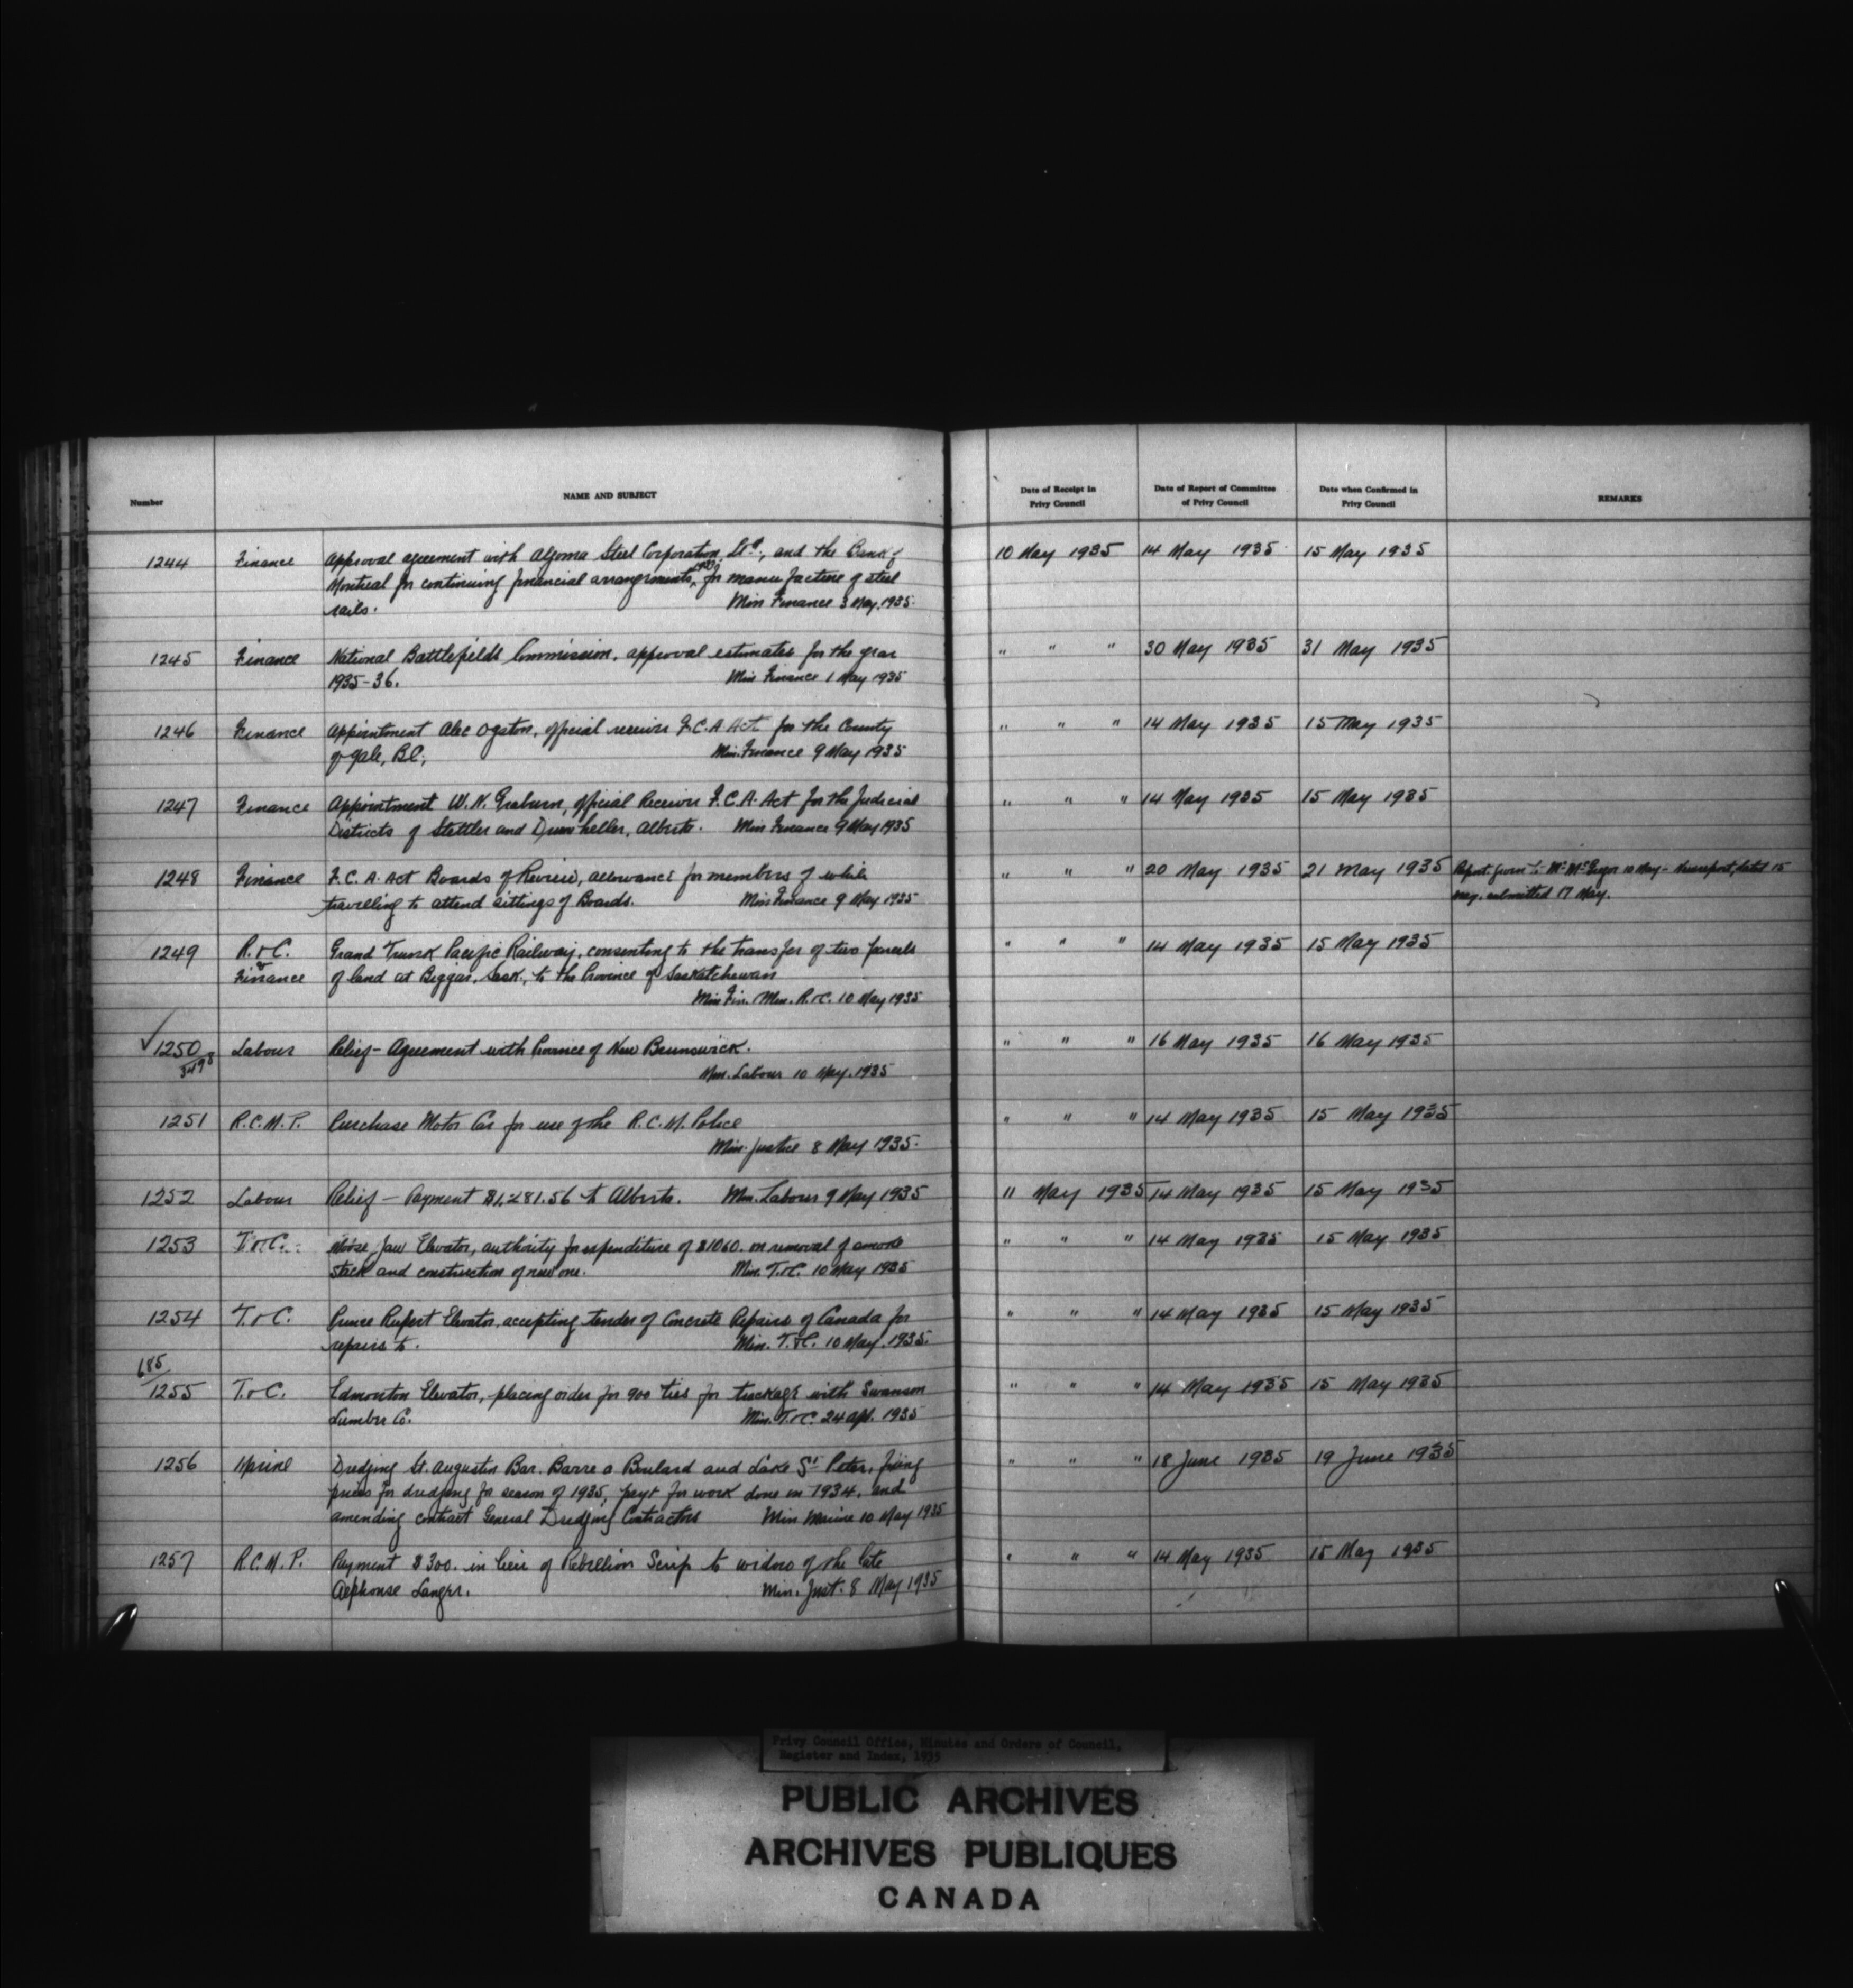 Number NAME AND SUBJECT Date of Receipt in Privy Council Date of Report of Committee of Privy Council Date when Confirmed in Privy Council REMARKS
1244 Finance Approval agreement with Algoma Steel Corporation, Ltd., and the Bank of 10 May 1935 14 May 1935 15 May 1935
Montreal for continuing financial arrangements for manufacture of steel
rails. Min Finance 3 May, 1935.
1245 Finance National Battlefields Commission, approval estimates for the year " " " 30 May 1935 31 May 1935
1935-36. Min Finance 1 May 1935
1246 Finance Appointment Alec Ogston, official receiver F.C.A Act for the County " " " 14 May 1935 15 May 1935
of Yale, B.C., Min. Finance 9 May 1935
1247 Finance Appointment W. N. Graburn, official Receiver F.C.A. Act for the Judicial " " " 14 May 1935 15 May 1935
Districts of Stettler and Drumheller, Alberta. Min Finance 9 May 1935
1248 Finance F.C.A. Act Boards of Review, allowance for members of while " " " 20 May 1935 21 May 1935 Report given to Mr McGregor 10 May - new report, dated 15
travelling to attend sittings of Boards. Min Finance 9 May 1935 May, submitted 17 May.
1249 R. & C. Grand Trunk Pacific Railway, consenting to the transfer of two parcels " " " 14 May 1935 15 May 1935
& Finance of land at Biggar, Sask., to the Province of Saskatchewan
Min Fin. Min. R. & C. 10 May 1935
✓ 1250 Labour Relief - Agreement with Province of New Brunswick. " " " 16 May 1935 16 May 1935
Min. Labour 10 May. 1935
1251 R.C.M.P. Purchase Motor Car for use of the R.C.M. Police " " " 14 May 1935 15 May 1935
Min. Justice 8 May 1935.
1252 Labour Relief - Payment to Alberta. Min. Labour 9 May 1935 11 May 1935 14 May 1935 15 May 1935
1253 T. & C. Moose Jaw Elevator, authority for expenditure of $1060. on removal of smoke " " " 14 May 1935 15 May 1935
stack and construction of new one. Min. T. & C. 10 May 1935
1254 T. & C. Prince Rupert Elevator, accepting tender of Concrete Repairs of Canada for " " " 14 May 1935 15 May 1935
repairs to. Min. T. & C. 10 May. 1935.
685
1255 T. & C. Edmonton Elevator, placing order for 900 ties for trackage with Swanson " " " 14 May 1935 15 May 1935
Lumber Co. Min. T. & C. 24 Apl. 1935
1256 Marine Dredging St. Augustin Bar. Barre a Boulard and Lake St Peter, fixing " " " 18 June 1935 19 June 1935
prices for dredging for season of 1935, payt for work done in 1934, and
amending contract General Dredging Contractors Min Marine 10 May 1935
1257 R.C.M.P. Payment $300. in lieu of Rebellion Scrip to widow of the late " " " 14 May 1935 15 May 1935
Alphonse Min. Just. 8 May 1935
Privy Council Office, Minutes and Orders of Council,
Register and Index, 1935
PUBLIC ARCHIVES
ARCHIVES PUBLIQUES
CANADA